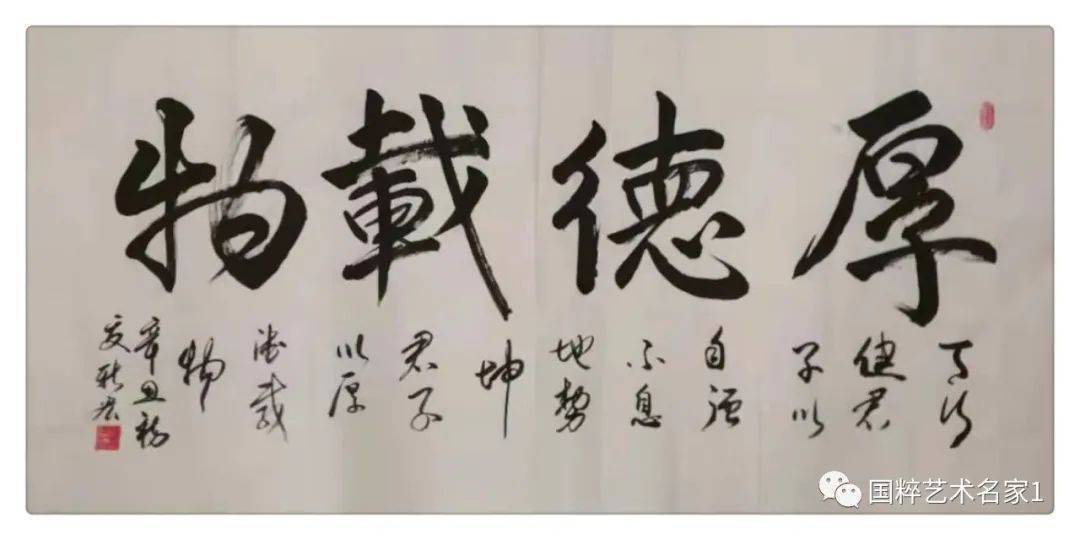 厚德載物
天行
健君
子以
自强
不息
地势
坤
君子
以厚
德载
物
辛丑初
夏
国粹艺术名家1